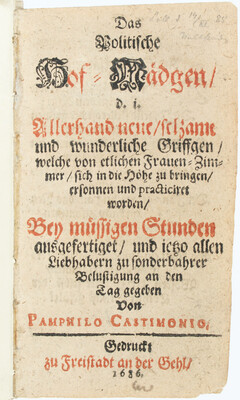 Das
Politische
Hof-Mädgen/
d. i.
Allerhand neue/selzame
und wunderliche Griffgen/
welche von etlichen Frauen-Zim-
mer/sich in die Höhe zu bringen/
ersonnen und practiciret
worden/
Bey müssigen Stunden
ausgefertiget/ und ietzo allen
Liebhabern zu sonderbahrer
Belustigung an den
Tag gegeben
Von
PAMPHILO CASTIMONIO,
Gedruckt
zu Freistadt an der Gehl/
1686.